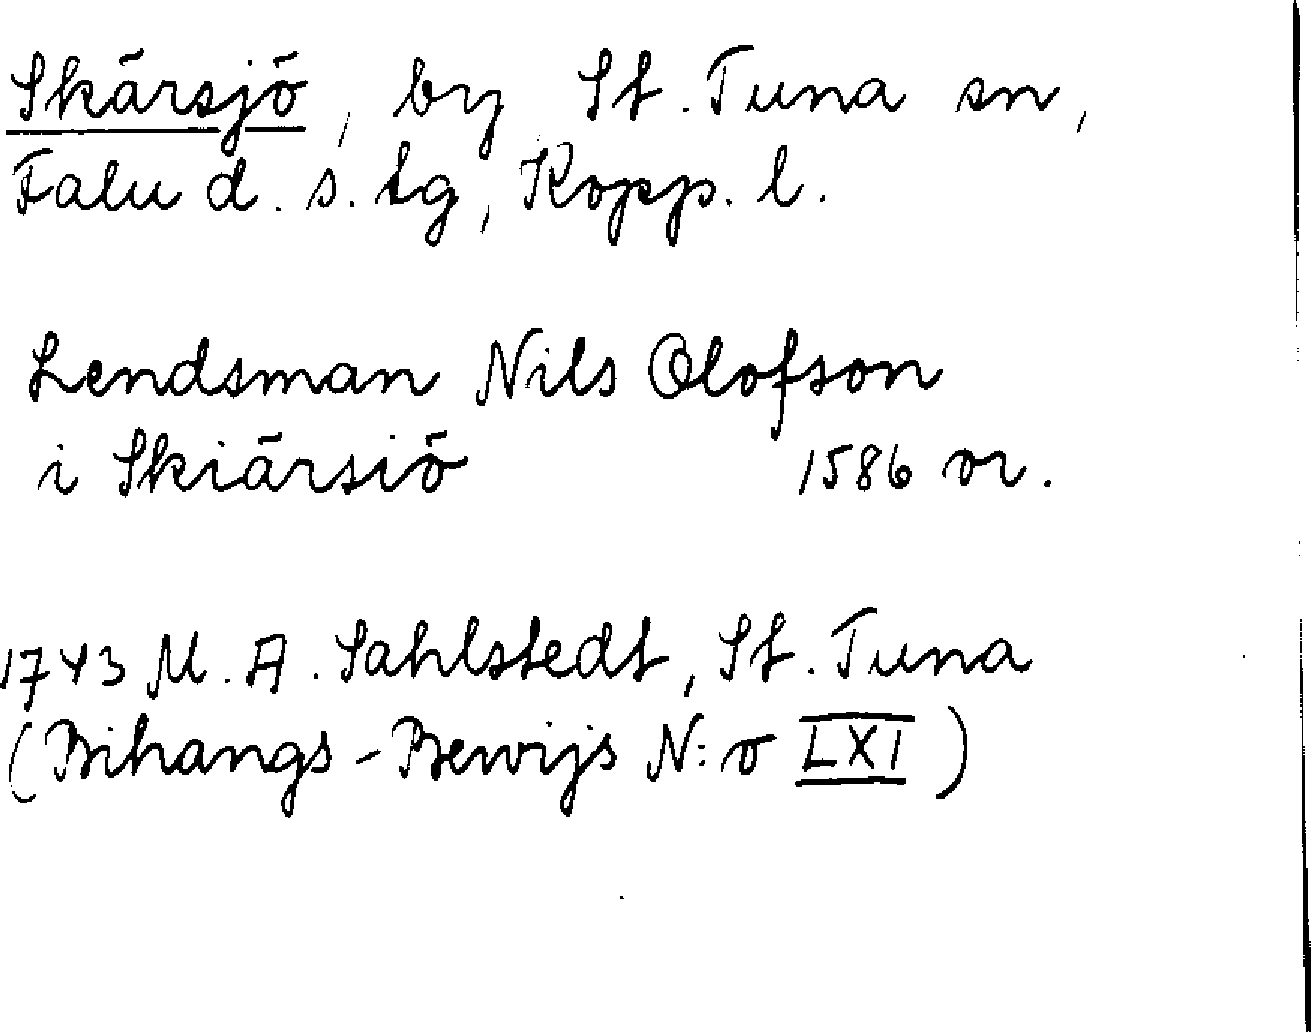 Skärsjö, by St. Tuna sn,
Falu d. s. tg, Kopp. l.
Lendsman Nils Olofson
i Skiärsiö 1586 or.
1743 M. A. Sahlstedt, St. Tuna
(Bihangs-Bewijs N:o LXI)